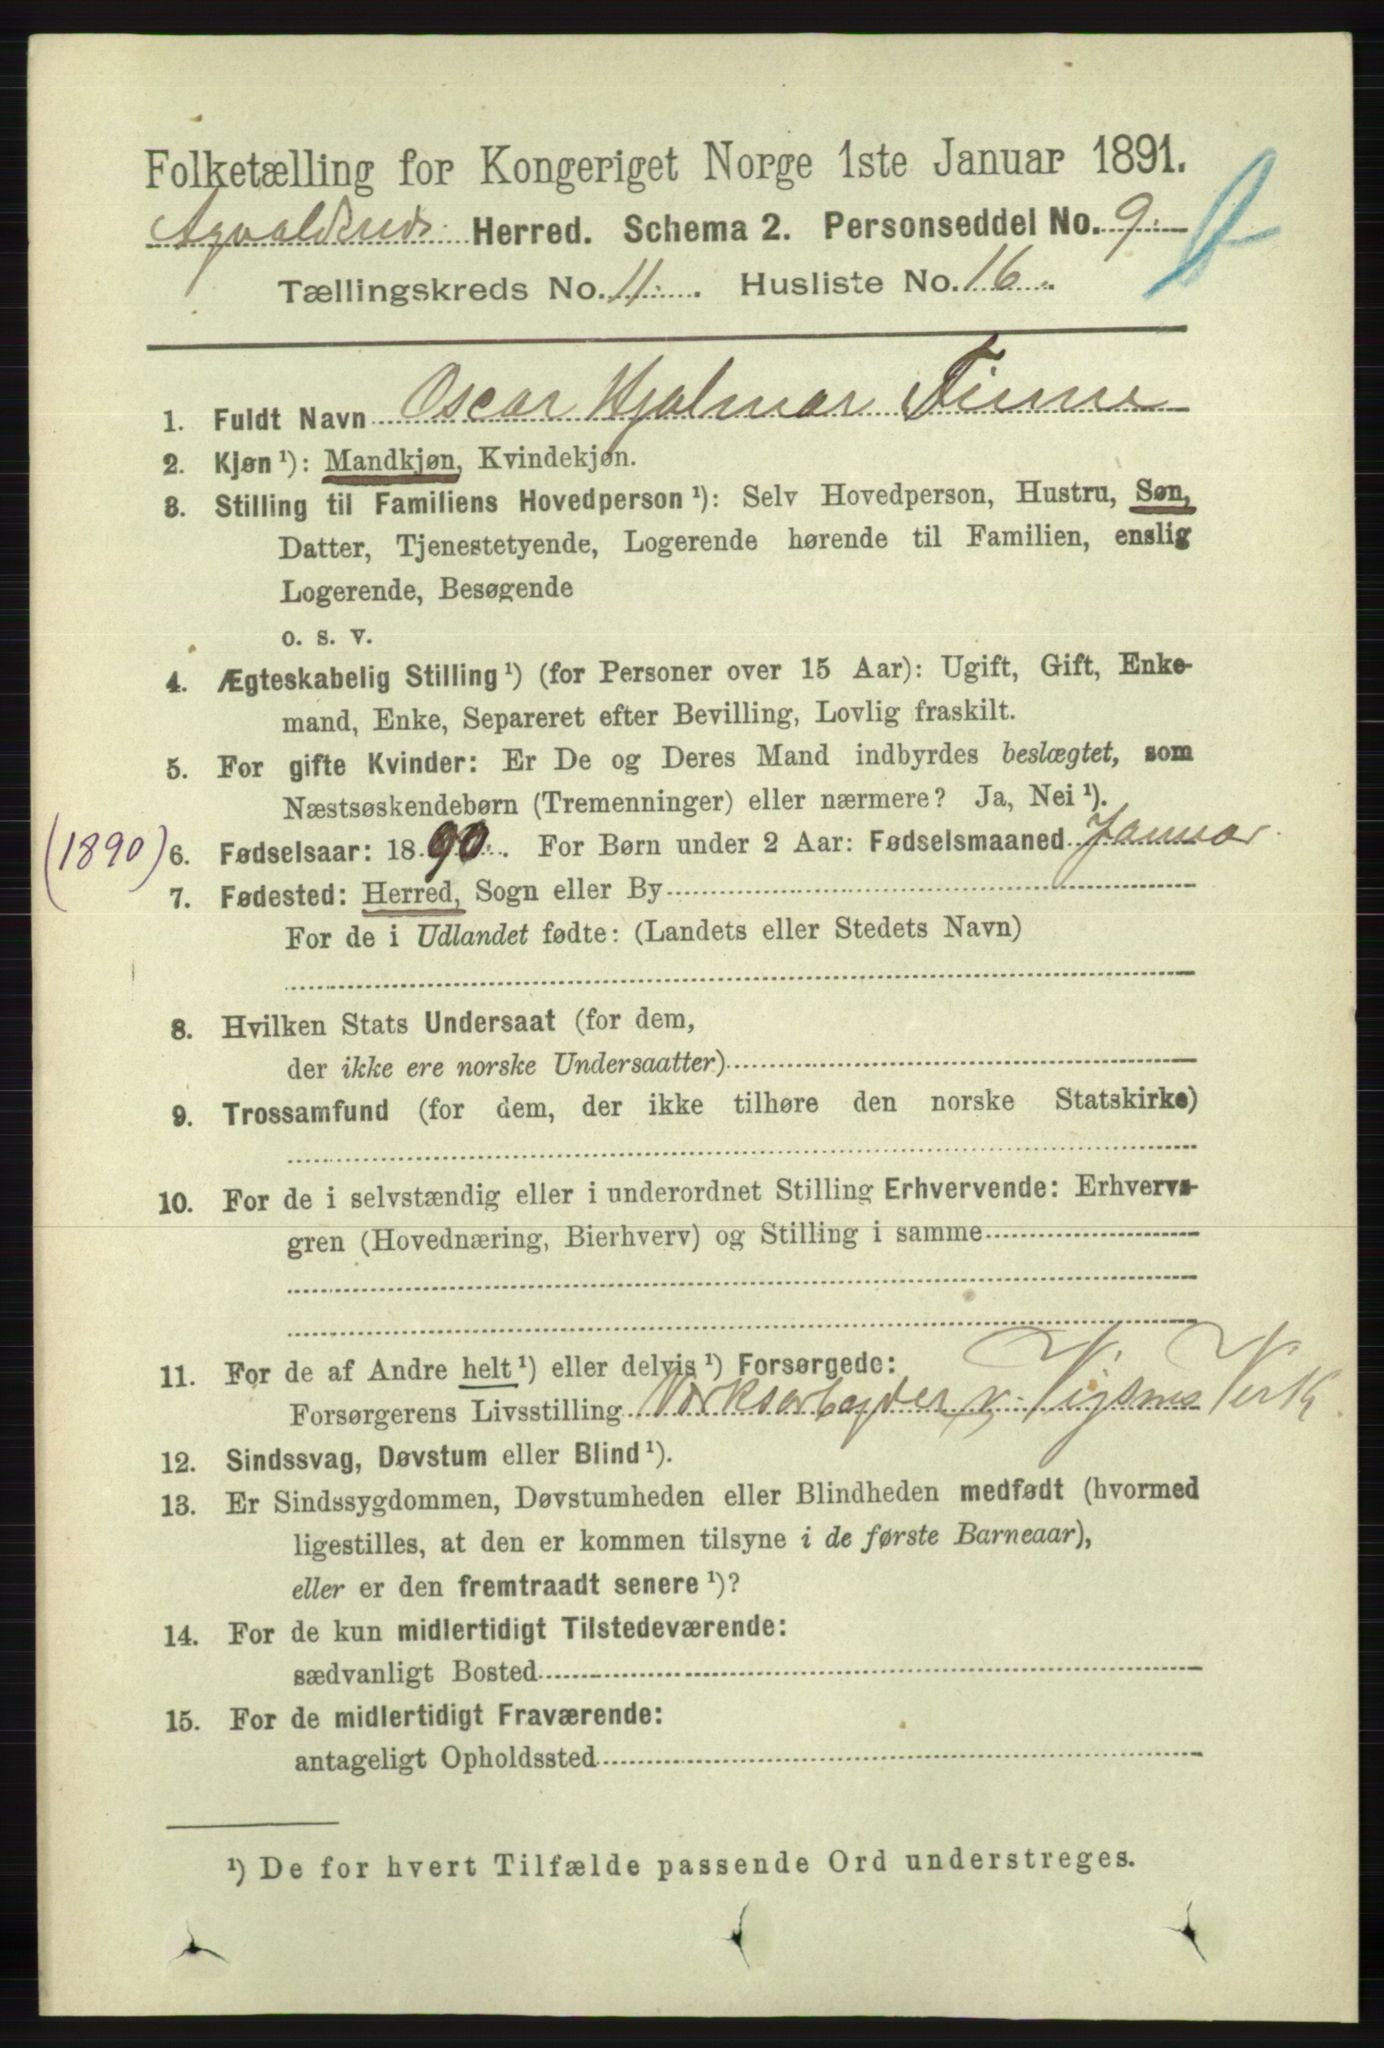 Folketælling for Kongeriget Norge 1ste Januar 1891.
Herred. Schema 2. Personseddel No. 9.
Tællingskreds No. 11. Husliste No. 16.
1. Fuldt Navn Oscar Hjalmar Finne
2. Kjøn ¹): Mandkjøn, Kvindekjøn.
3. Stilling til Familiens Hovedperson ¹): Selv Hovedperson, Hustru, Søn,
Datter, Tjenestetyende, Logerende hørende til Familien, enslig
Logerende, Besøgende
o. s. v.
4. Ægteskabelig Stilling ¹) (for Personer over 15 Aar): Ugift, Gift, Enke-
mand, Enke, Separeret efter Bevilling, Lovlig fraskilt.
5. For gifte Kvinder: Er De og Deres Mand indbyrdes beslægtet, som
Næstsøskendebørn (Tremenninger) eller nærmere? Ja, Nei ¹).
(1890) 6. Fødselsaar: 1890. For Børn under 2 Aar: Fødselsmaaned Januar.
7. Fødested: Herred, Sogn eller By
For de i Udlandet fødte: (Landets eller Stedets Navn)
8. Hvilken Stats Undersaat (for dem,
der ikke ere norske Undersaatter)
9. Trossamfund (for dem, der ikke tilhøre den norske Statskirke)
10. For de i selvstændig eller i underordnet Stilling Erhvervende: Erhvervs-
gren (Hovednæring, Bierhverv) og Stilling i samme
11. For de af Andre helt ¹) eller delvis ¹) Forsørgede:
Forsørgerens Livsstilling Verksarbejder v. Vigsnes Verk
12. Sindssvag, Døvstum eller Blind ¹).
13. Er Sindssygdommen, Døvstumheden eller Blindheden medfødt (hvormed
ligestilles, at den er kommen tilsyne i de første Barneaar),
eller er den fremtraadt senere ¹)?
14. For de kun midlertidigt Tilstedeværende:
sædvanligt Bosted
15. For de midlertidigt Fraværende:
antageligt Opholdssted
¹) De for hvert Tilfælde passende Ord understreges.